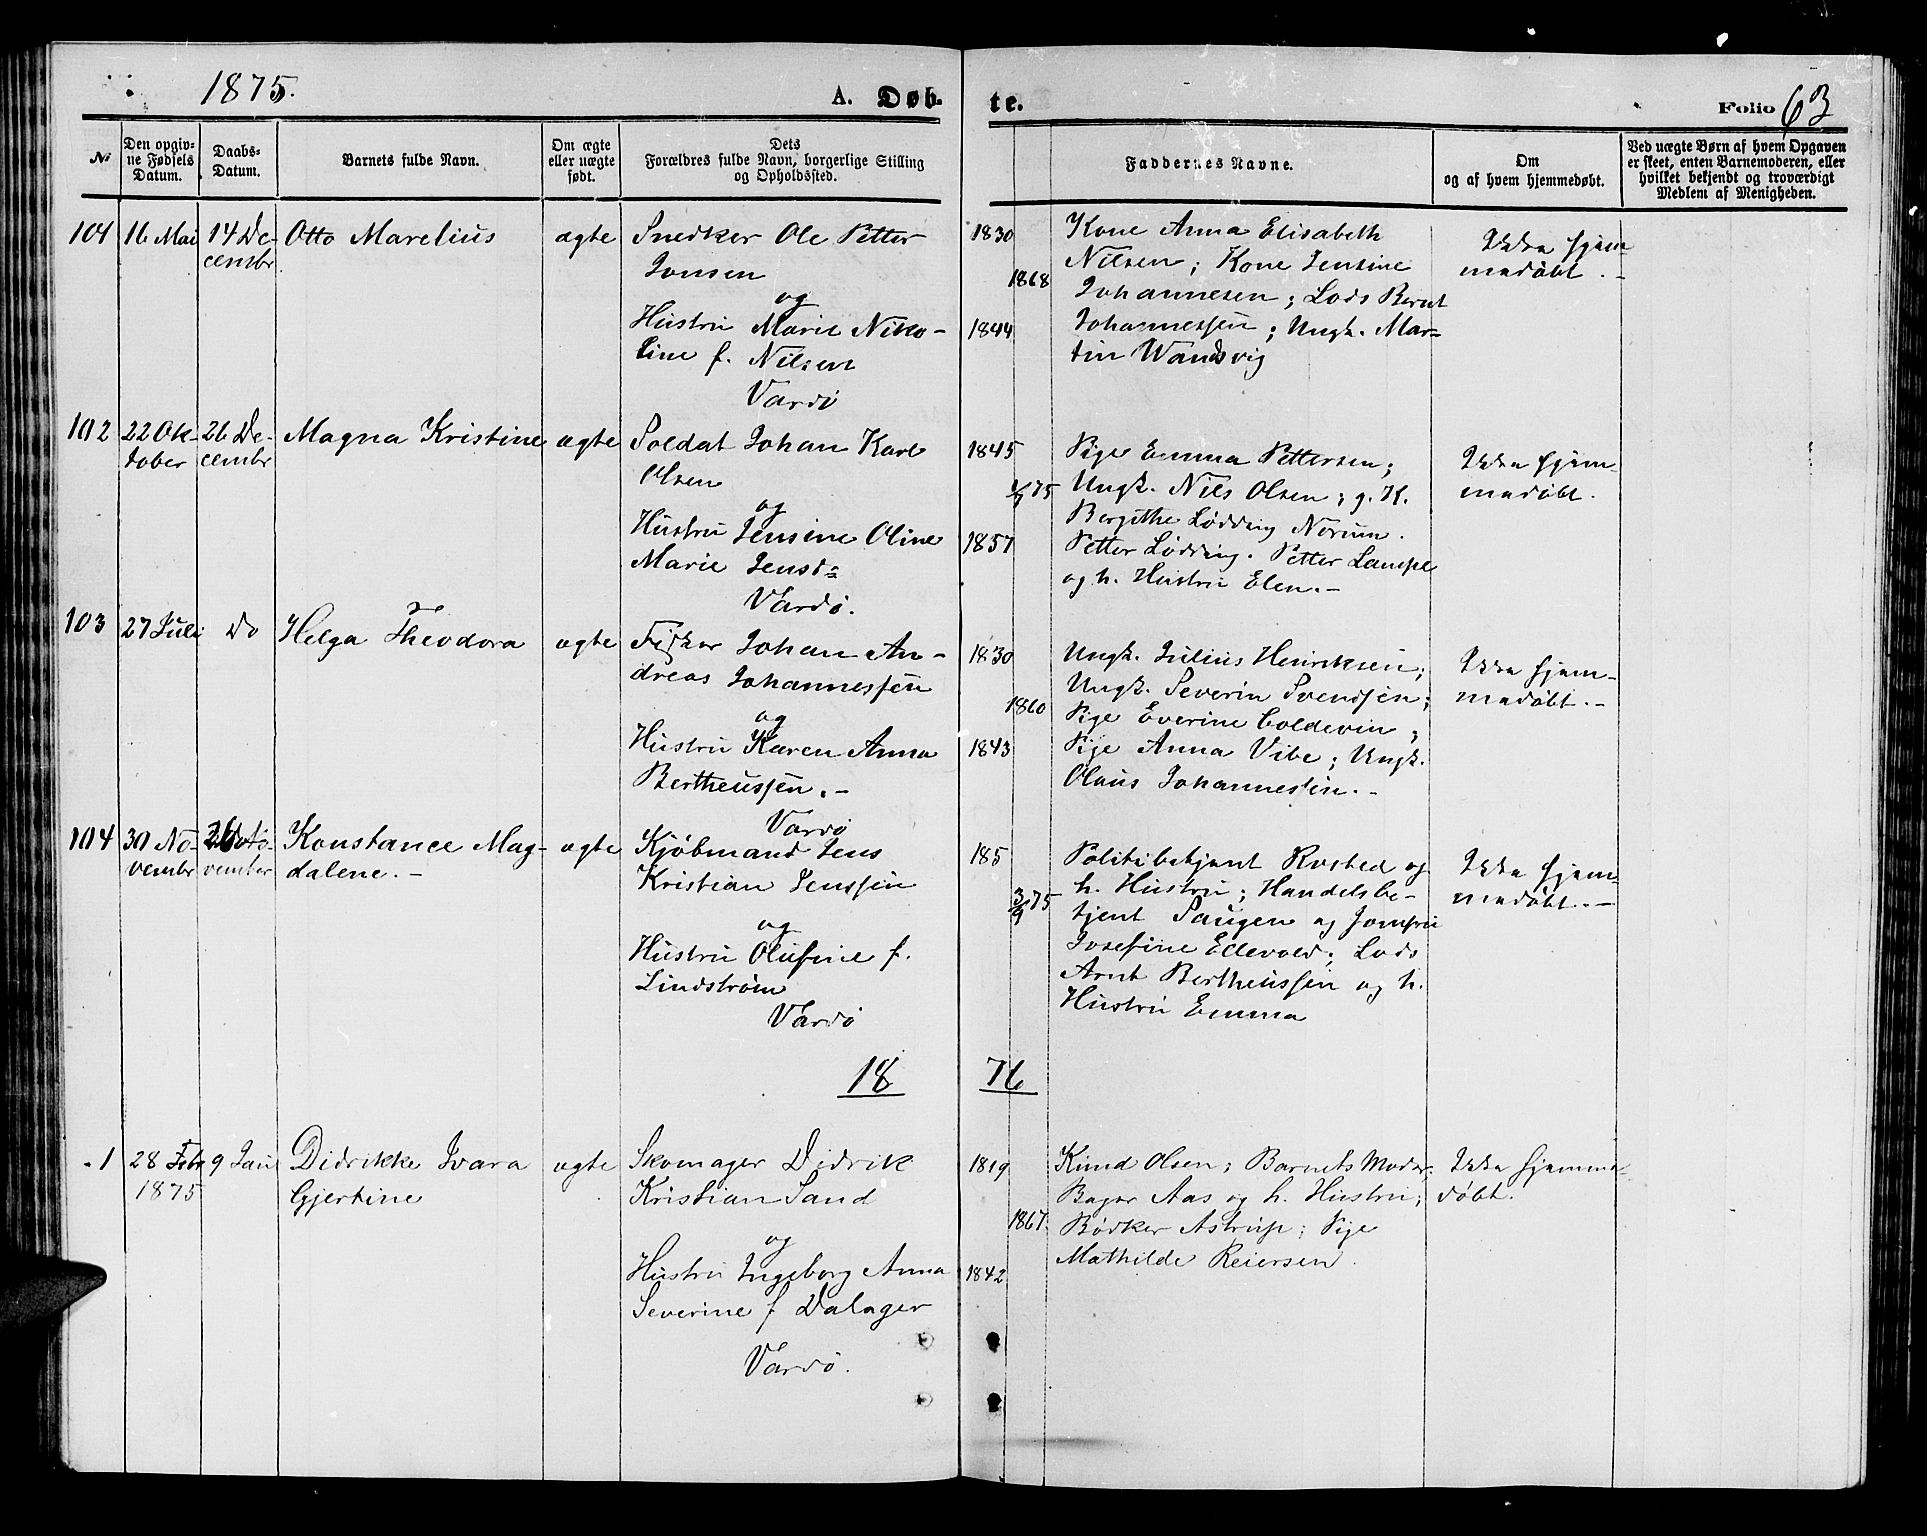 1875.
A. Døb-
te.
Folio 63
No
Den opgiv-
ne Fødsels
Datum.
Daabs-
Datum.
Barnets fulde Navn.
Om ægte
eller uægte
født.
Dets
Forældres fulde Navn, borgerlige Stilling
og Opholdssted.
Faddernes Navne.
Om
og af hvem hjemmedøbt.
Ved uægte Børn af hvem Opgaven
er skeet, enten Barnemoderen, eller
hvilket bekjendt og troværdigt
Medlem af Menigheden.
101
16 Mai
14 De-
cembr.
Otto Marelius
ægte
Snedker Ole Petter
Jonsen
og
Hustru Marie Niko-
line f. Nilsen
Vardö
1830
1868
1844
Kone Anna Elisabeth
Nilsen; Kone Jensine
Johannesen; Lods Bernt
Johannessen; Ungk. Mar-
tin Wandsvig
Ikke hjem-
medöbt.-
102
22 Ok-
tober
26 De-
cembr
Magna Kristine
ægte
Soldat Johan Karl
Olsen
og
Hustru Jensine Oline
Marie Jensd=
Vardö.
1845
75
1857
Pige Emma Pettersen;
Ungk. Nils Olsen; g. K.
Bergithe Lödding Norum.
Petter Lödding. Petter Lampe
og h. Hustru Elen.-
Ikke hjem-
medöbt.
103
27 Juli
Do
Helga Theodora
ægte
Fisker Johan An-
dreas Johannessen
og
Hustru Karen Anna
Bertheussen.-
Vardö
1830
1860
1843
Ungk. Julius Henriksen;
Ungk. Severin Svendsen;
Pige Everine Coldevin;
Pige Anna Vibe; Ungk.
Olaus Johannessen.-
Ikke hjem-
medöbt.-
104
30 No-
vembr
26 No-
vember
Konstance Mag-
dalene.-
ægte
Kjöbmand Jens
Kristian Jenssen
og
Hustru Olufine f.
Lindström
Vardö
185
3/9 75
Politibetjent Rusted og
h. Hustru; Handelsbe-
tjent Saugen og Jomfru
Josefine Ellevold; Lods
Arnt Bertheussen og h.
Hustru Emma
Ikke hjem-
medöbt.-
18 76
1
28 Febr
1875
9 Jan
Didrikke Ivara
Gjertine
ægte
Skomager Didrik
Kristian Sand
og
Hustru Ingeborg Anna
Severine f Dalager
Vardö.
1819
1867.
1842
Knud Olsen; Barnets Moder;
Bager Aas og h. Hustru;
Bödker Astrup; Pige
Mathilde Reiersen.
Ikke hjemme-
döbt.